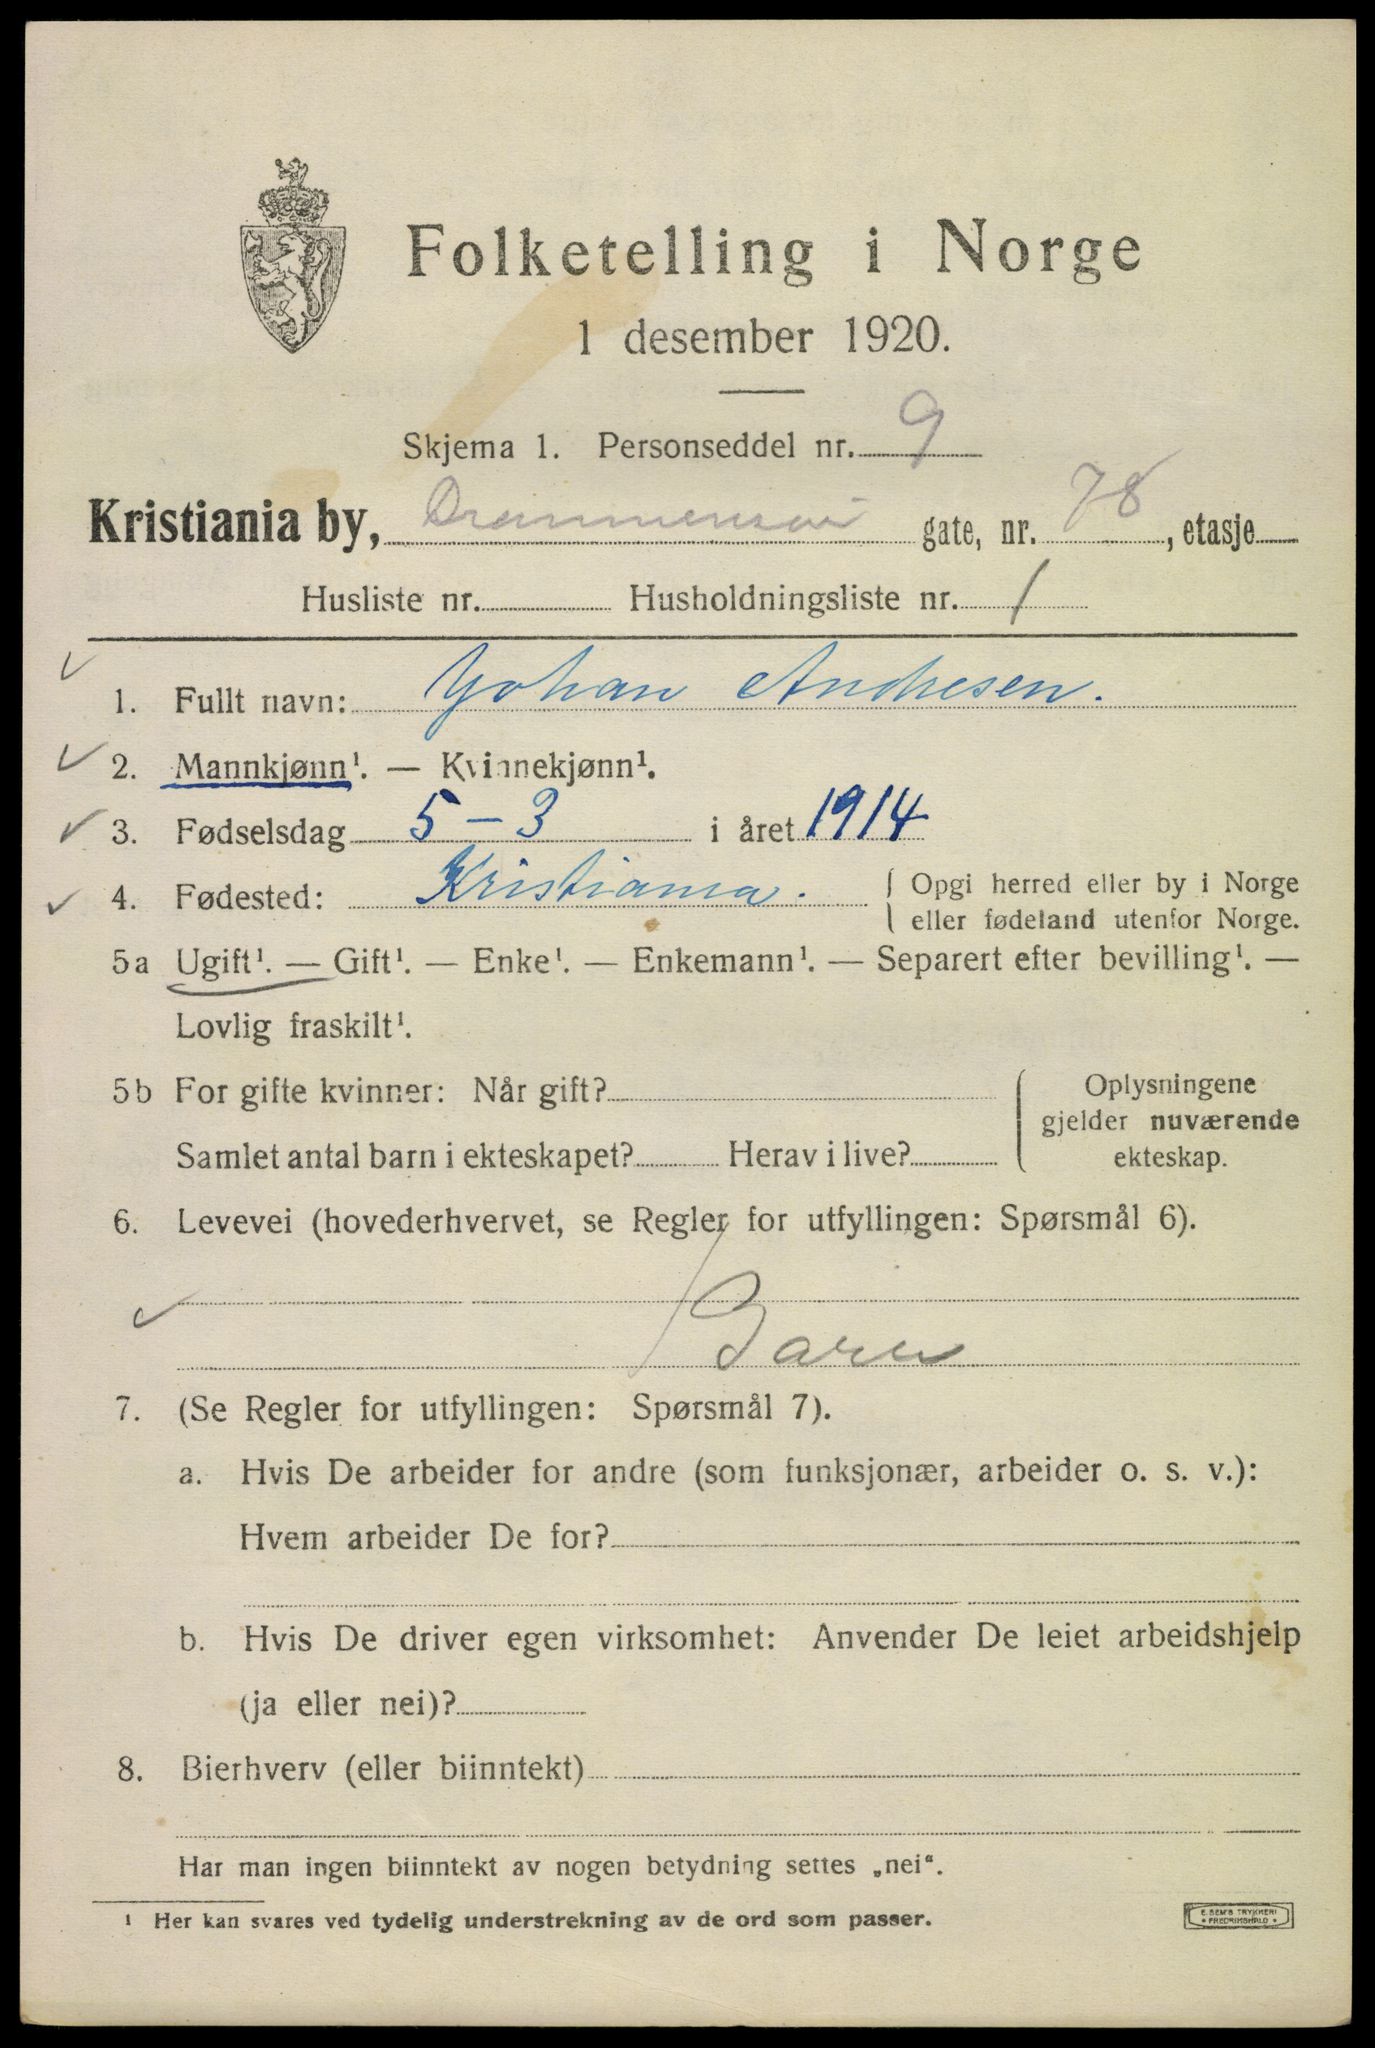 Folketelling i Norge
1 desember 1920.
Skjema 1. Personseddel nr. 9
Kristiania by, Drammensvei gate, nr. 78, etasje
Husliste nr. Husholdningsliste nr. 1
1. Fullt navn: Johan Andresen.
2. Mannkjønn¹. — Kvinnekjønn¹.
3. Fødselsdag 5 - 3 i året 1914
4. Fødested: Kristiania. { Opgi herred eller by i Norge
eller fødeland utenfor Norge.
5a Ugift¹. — Gift¹. — Enke¹. — Enkemann¹. — Separert efter bevilling¹. —
Lovlig fraskilt¹.
5b For gifte kvinner: Når gift? { Oplysningene
gjelder nuværende
Samlet antal barn i ekteskapet? Herav i live? ekteskap.
6. Levevei (hovederhvervet, se Regler for utfyllingen: Spørsmål 6).
Barn
7. (Se Regler for utfyllingen: Spørsmål 7).
a. Hvis De arbeider for andre (som funksjonær, arbeider o. s. v.):
Hvem arbeider De for?
b. Hvis De driver egen virksomhet: Anvender De leiet arbeidshjelp
(ja eller nei)?
8. Bierhverv (eller biinntekt)
Har man ingen biinntekt av nogen betydning settes „nei“.
¹ Her kan svares ved tydelig understrekning av de ord som passer.
E. SEM'S TRYKKERI
• FREDRIKSHALD •